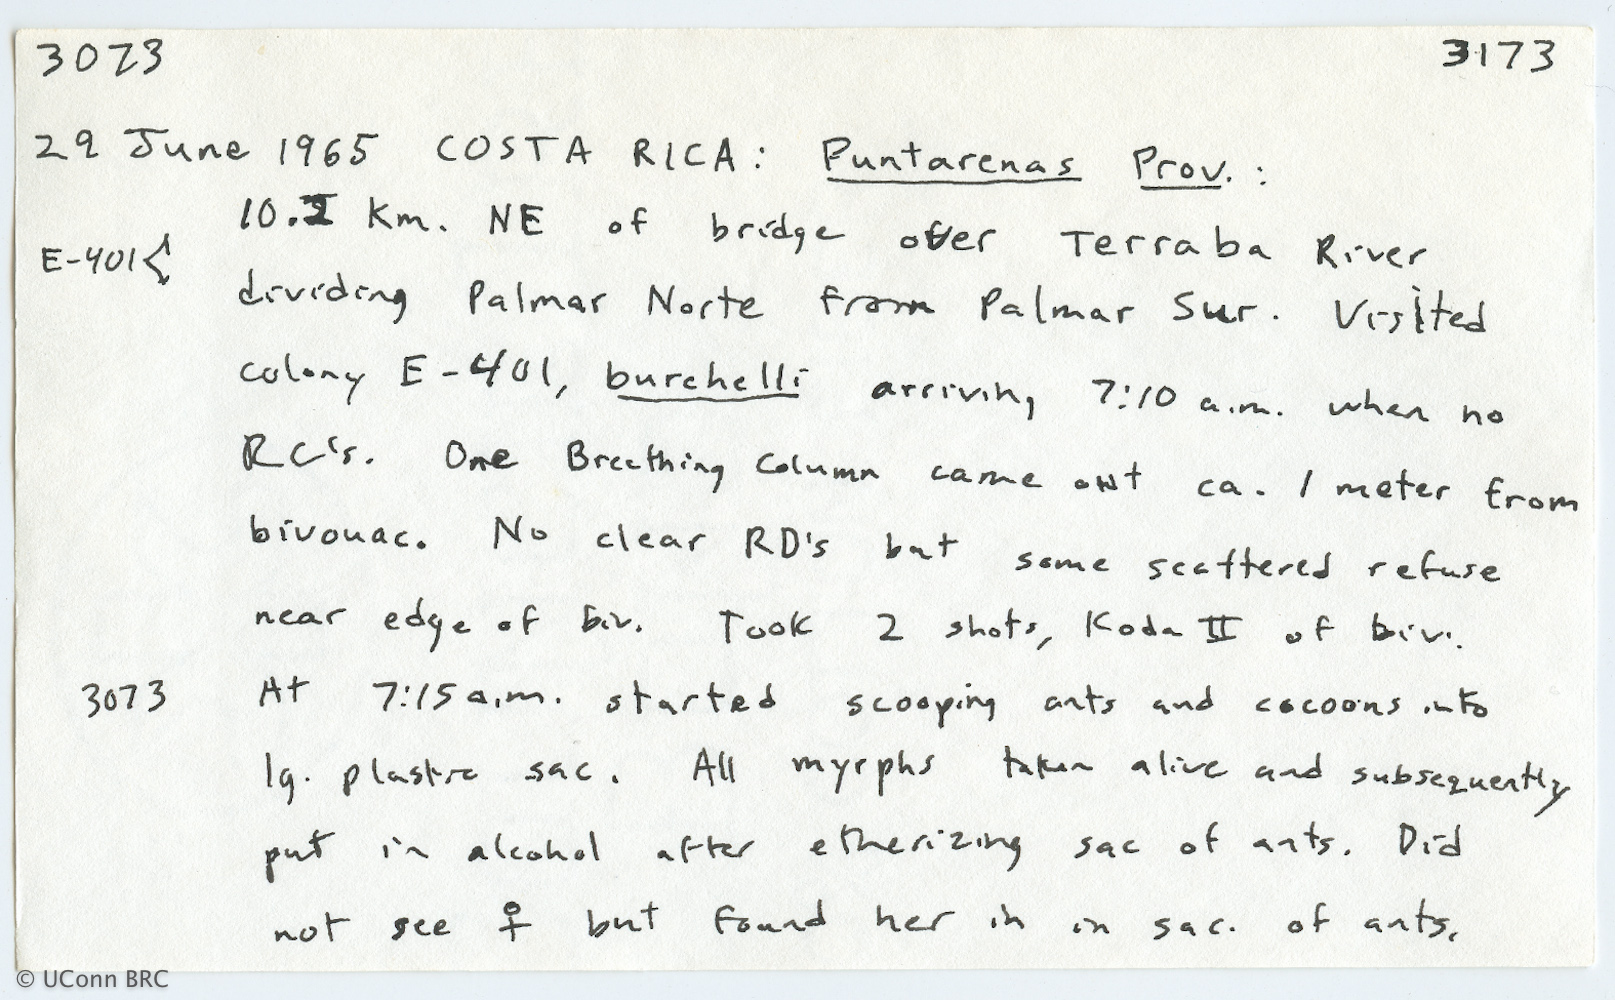 3073 3173
29 June 1965 COSTA RICA: Puntarenas Prov.:
10.2 Km. NE of bridge over Terraba River
E-401
dividing Palmar Norte from Palmar Sur. Visited
colony E-401, burchelli arriving 7:10 a.m. when no
RC's. One Breathing Column came out ca. 1 meter from
bivouac. No clear RD's but some scattered refuse
near edge of biv. Took 2 shots, Koda II of biv.
3073 At 7:15 a.m. started scooping ants and cocoons into
lg. plastic sac. All myrphs taken alive and subsequently
put in alcohol after etherizing sac of ants. Did
not see ♀ but found her in in sac. of ants.
© UConn BRC